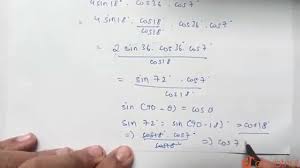 4 sin18° · cos36° · cos7°
4 sin18° · cos18°/cos18° cos36° · cos7°
= 2 sin36° · cos36° · cos7° / cos18°
= sin 72° · cos7° / cos18°
sin (90 - θ) = cos θ
sin 72° = sin (90-18)° = cos18°
=) cos18° · cos7° / cos18° =) cos 7